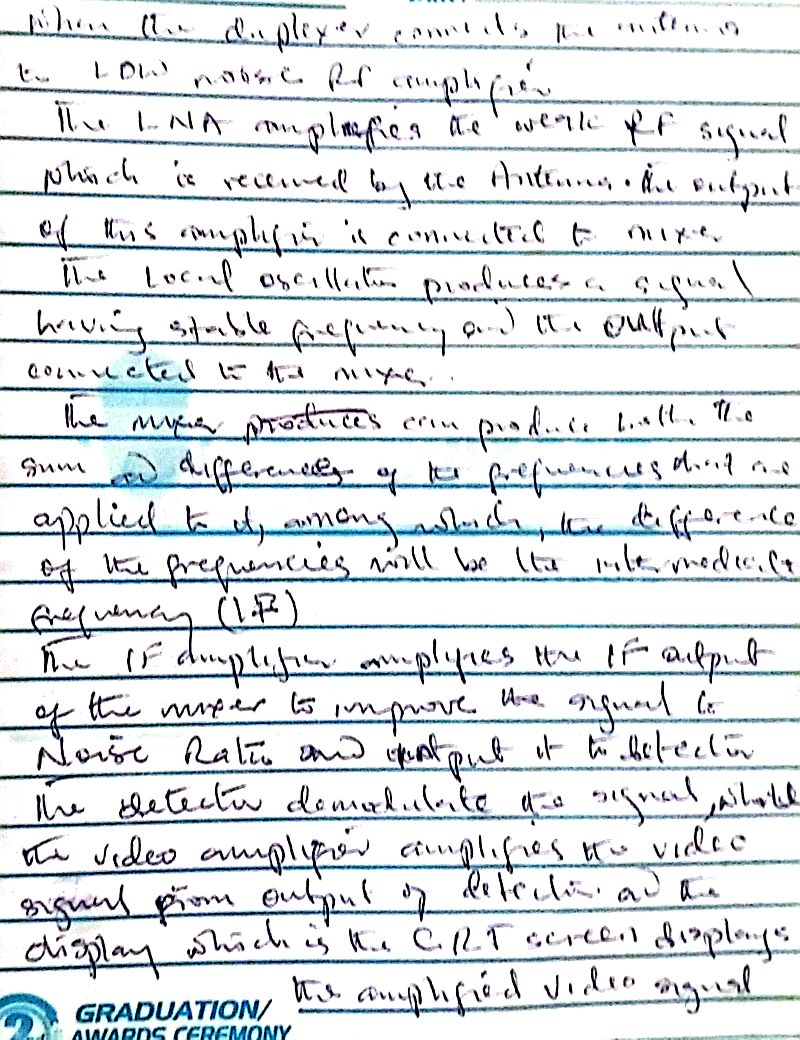 When the duplexer connects the antenna
to LOW noise RF amplifier
The LNA amplifies the weak RF signal
which is received by the Antenna. The output
of this amplifier is connected to mixer
The Local oscillator produces a signal
having stable frequency and the output
connected to the mixer.
The mixer produces can produce both the
sum and differences of the frequencies that are
applied to it, among which, the difference
of the frequencies will be the intermediate
frequency (I.F)
The IF amplifier amplifies the IF output
of the mixer to improve the signal to
Noise Ratio and output it to detector
The detector demodulate the signal, while
the video amplifier amplifies the video
signal from output of detector and the
display which is the CRT screen displays
the amplified video signal
2 GRADUATION/
AWARDS CEREMONY